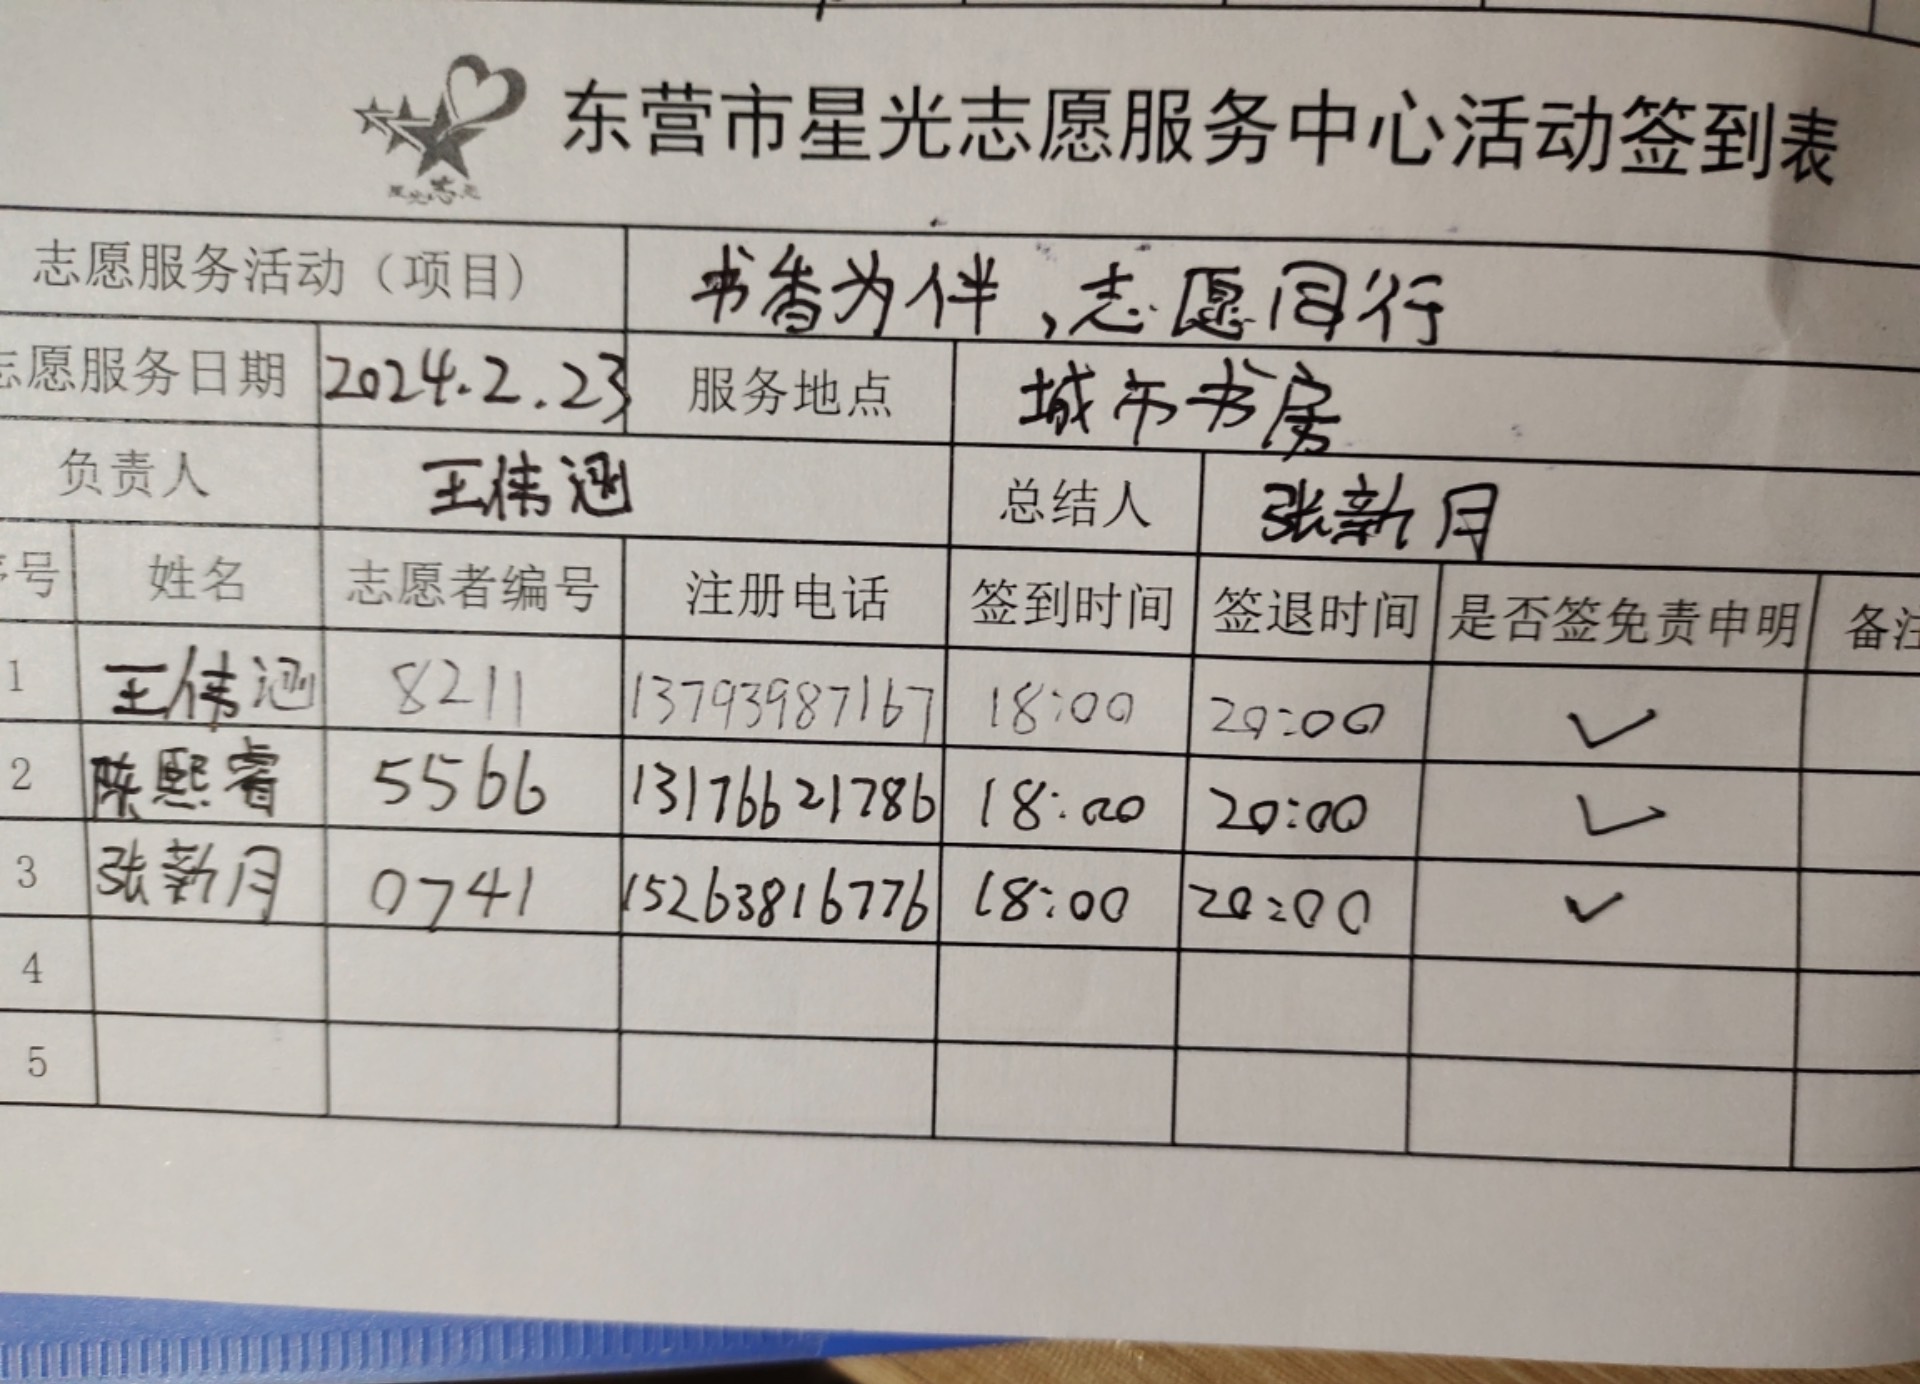 星光志愿
东营市星光志愿服务中心活动签到表
志愿服务活动（项目） 书香为伴，志愿同行
志愿服务日期 2024.2.23 服务地点 城市书房
负责人 王伟涵 总结人 张新月
序号 姓名 志愿者编号 注册电话 签到时间 签退时间 是否签免责申明 备注
1 王伟涵 8211 13793987167 18:00 20:00 ✓
2 陈熙睿 5566 13176621786 18:00 20:00 ✓
3 张新月 0741 15263816776 18:00 20:00 ✓
4
5